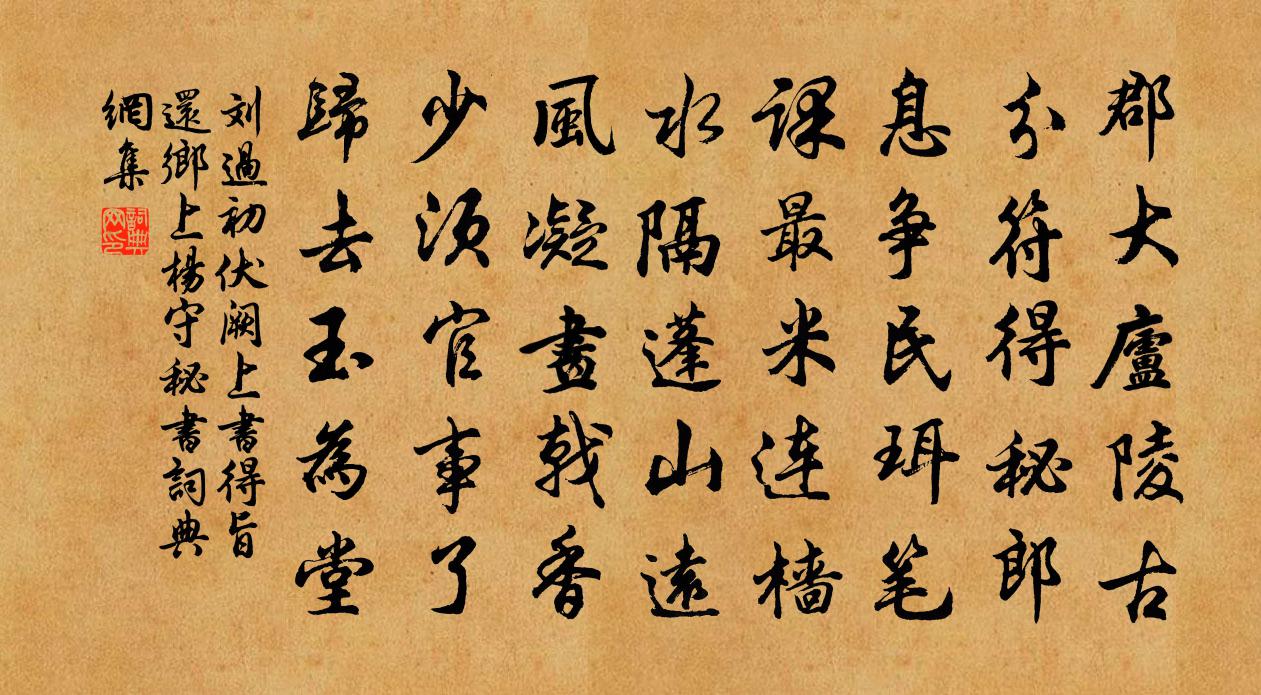 郡大廬陵古
分符得秘郎
息争民珥笔
課最米连檣
水隔蓬山遠
風凝畫戟香
少須官事了
歸去玉為堂
刘過初伏阙上書得旨
還鄉上楊守秘書詞典
網集
詞典網印